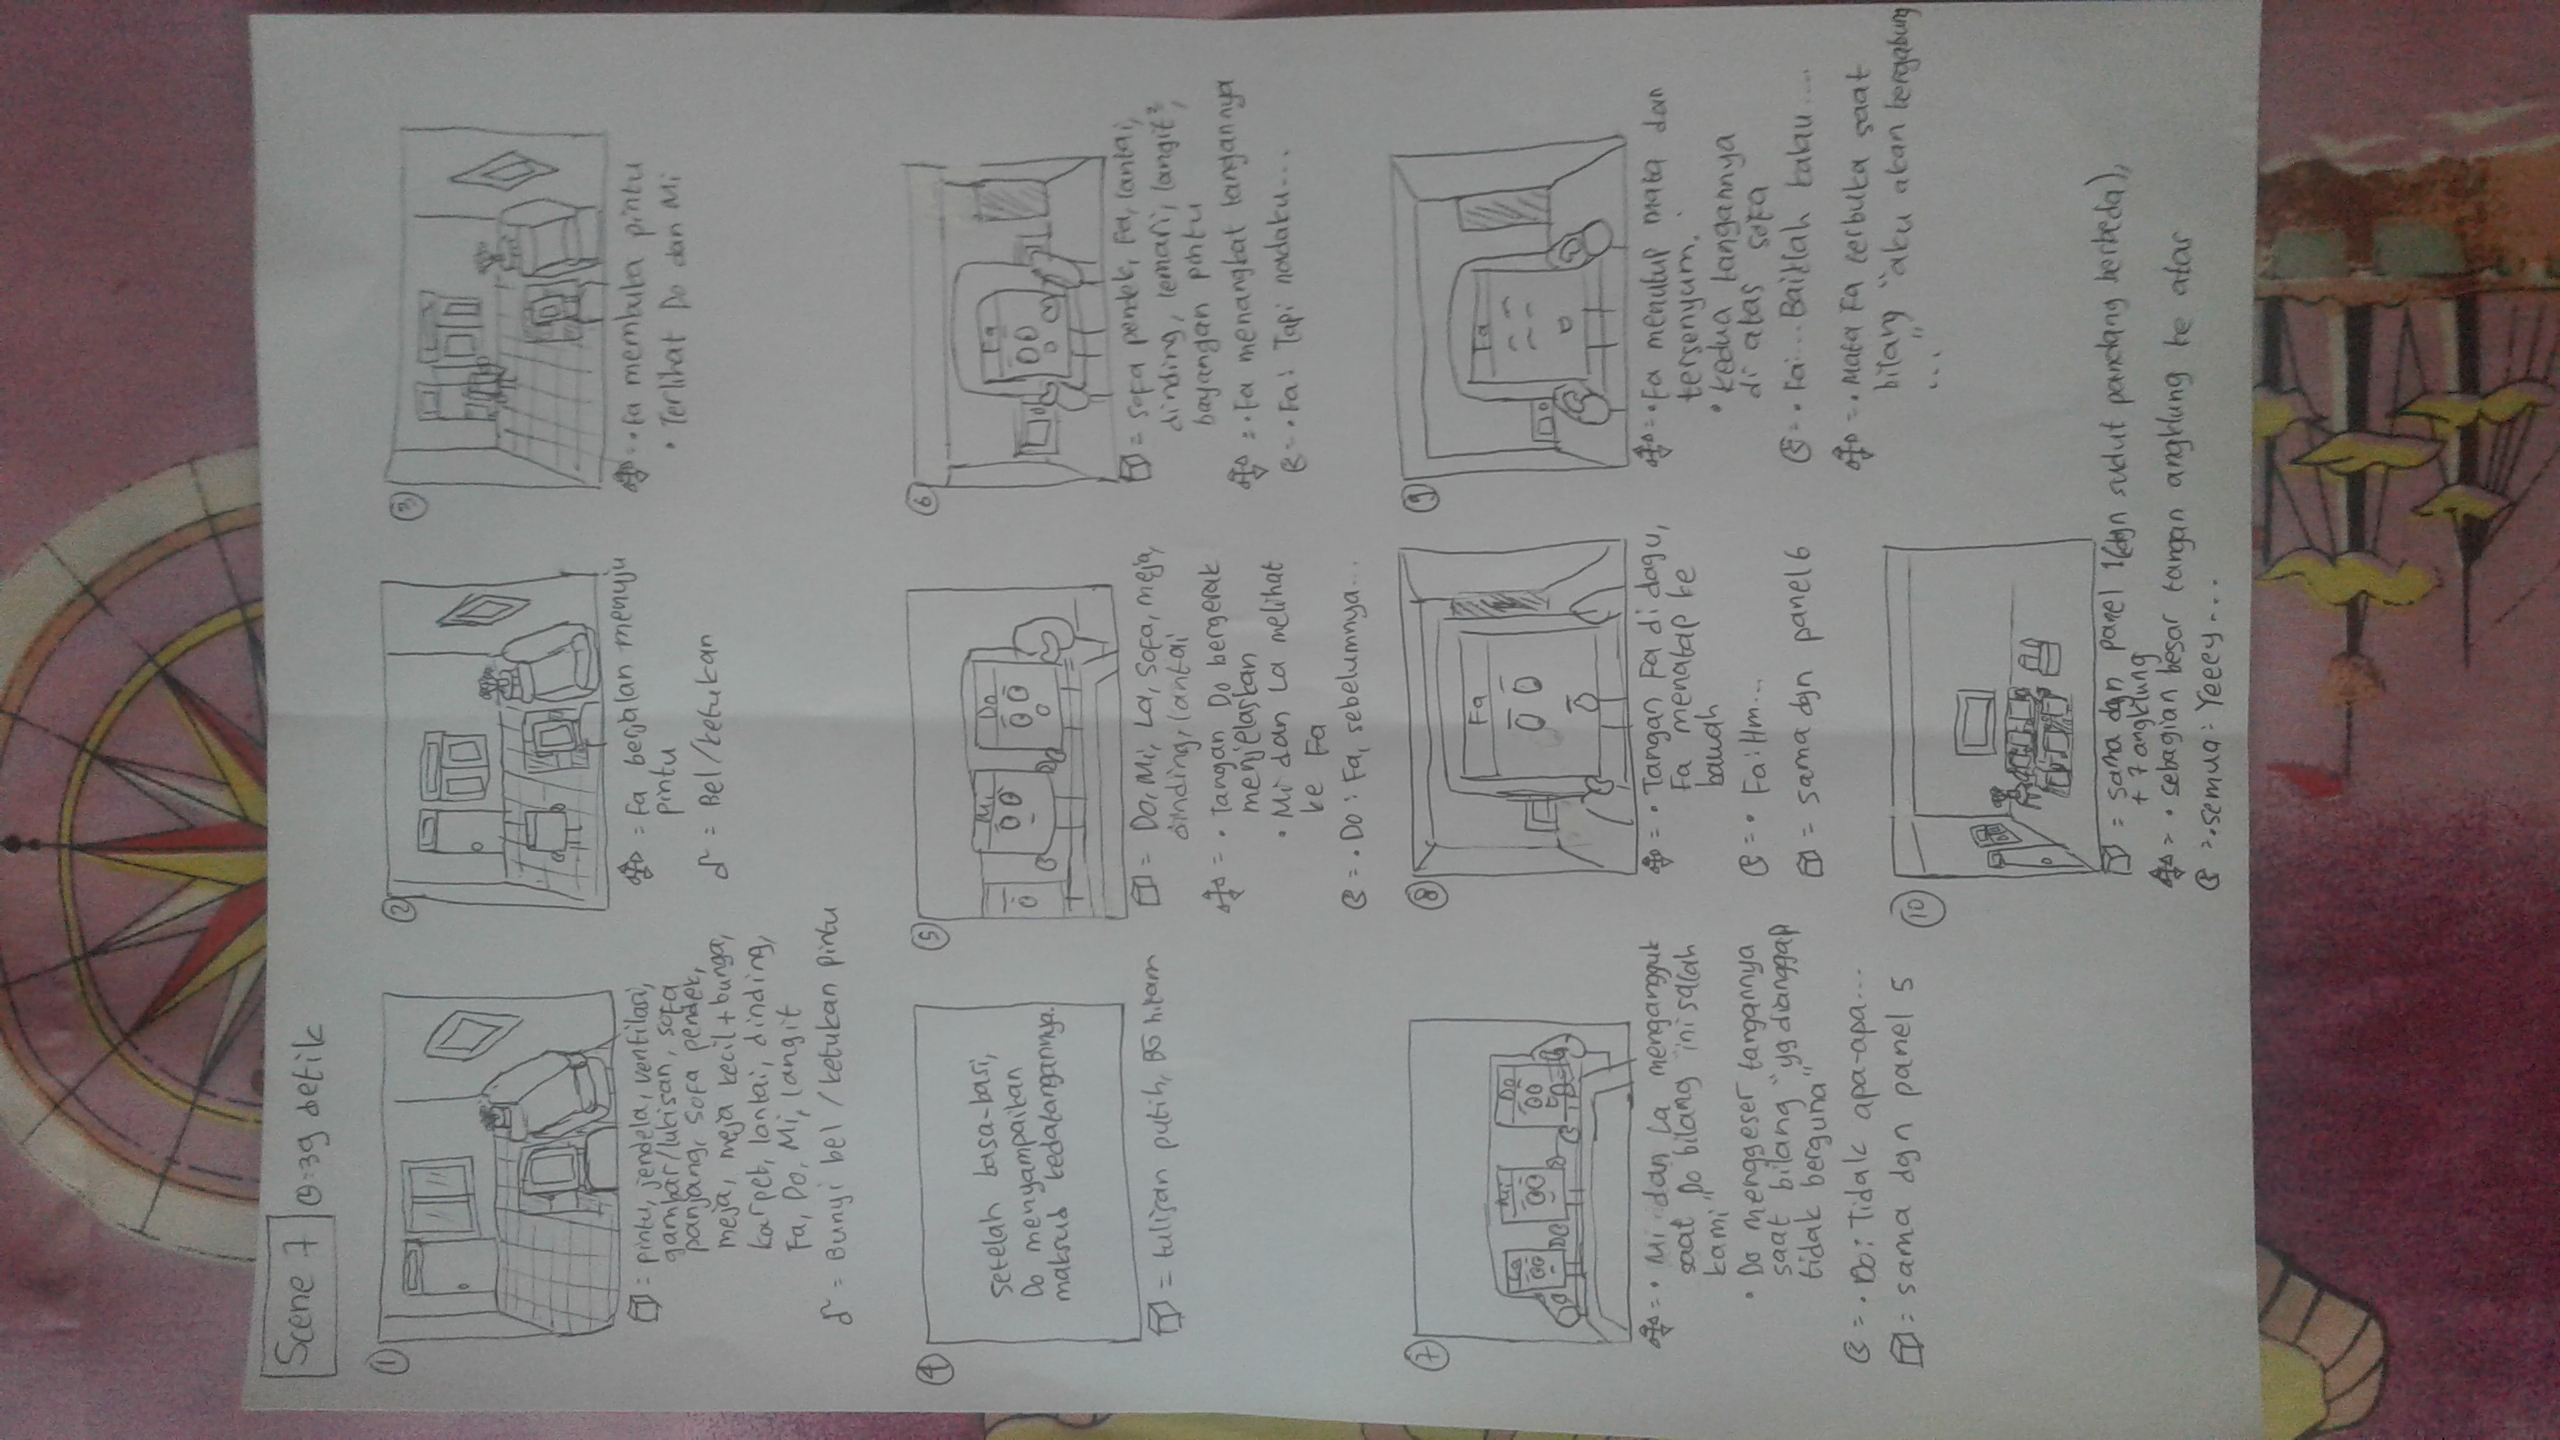 Scene 7
= 39 detik
1
= pintu, jendela, ventilasi,
gambar/lukisan, sofa
panjang, sofa pendek,
meja, meja kecil + bunga,
karpet, lantai, dinding,
Fa, Do, Mi, langit
= Bunyi bel / ketukan pintu
2
= Fa berjalan menuju
pintu
= Bel/ketukan
3
= • Fa membuka pintu
• Terlihat Do dan Mi
4
Setelah basa-basi,
Do menyampaikan
maksud kedatangannya.
= tulisan putih, BG hitam
5
Mi
Do
= Do, Mi, La, Sofa, meja,
dinding, lantai
= • Tangan Do bergerak
menjelaskan
• Mi dan La melihat
ke Fa
= • Do : Fa, sebelumnya...
6
Fa
= Sofa pendek, Fa, lantai,
dinding, lemari, langit²,
bayangan pintu
= • Fa menangkat tangannya
= • Fa : Tapi nadaku...
7
La
Mi
Do
= • Mi dan La mengangguk
saat Do bilang "ini salah
kami"
• Do menggeser tangannya
saat bilang "yg dianggap
tidak berguna"
= • Do : Tidak apa-apa...
= sama dgn panel 5
8
Fa
= • Tangan Fa di dagu,
Fa menatap ke
bawah
= • Fa : Hm...
= sama dgn panel 6
9
Fa
= • Fa menutup mata dan
tersenyum.
• Kedua tangannya
di atas sofa
= • Fa ... Baiklah kalau ....
= • Mata Fa terbuka saat
bilang "aku akan bergabung
..."
10
= sama dgn panel 1 (dgn sudut pandang berbeda),
+ 7 angklung
= • sebagian besar tangan angklung ke atas
= • semua : Yeeey...